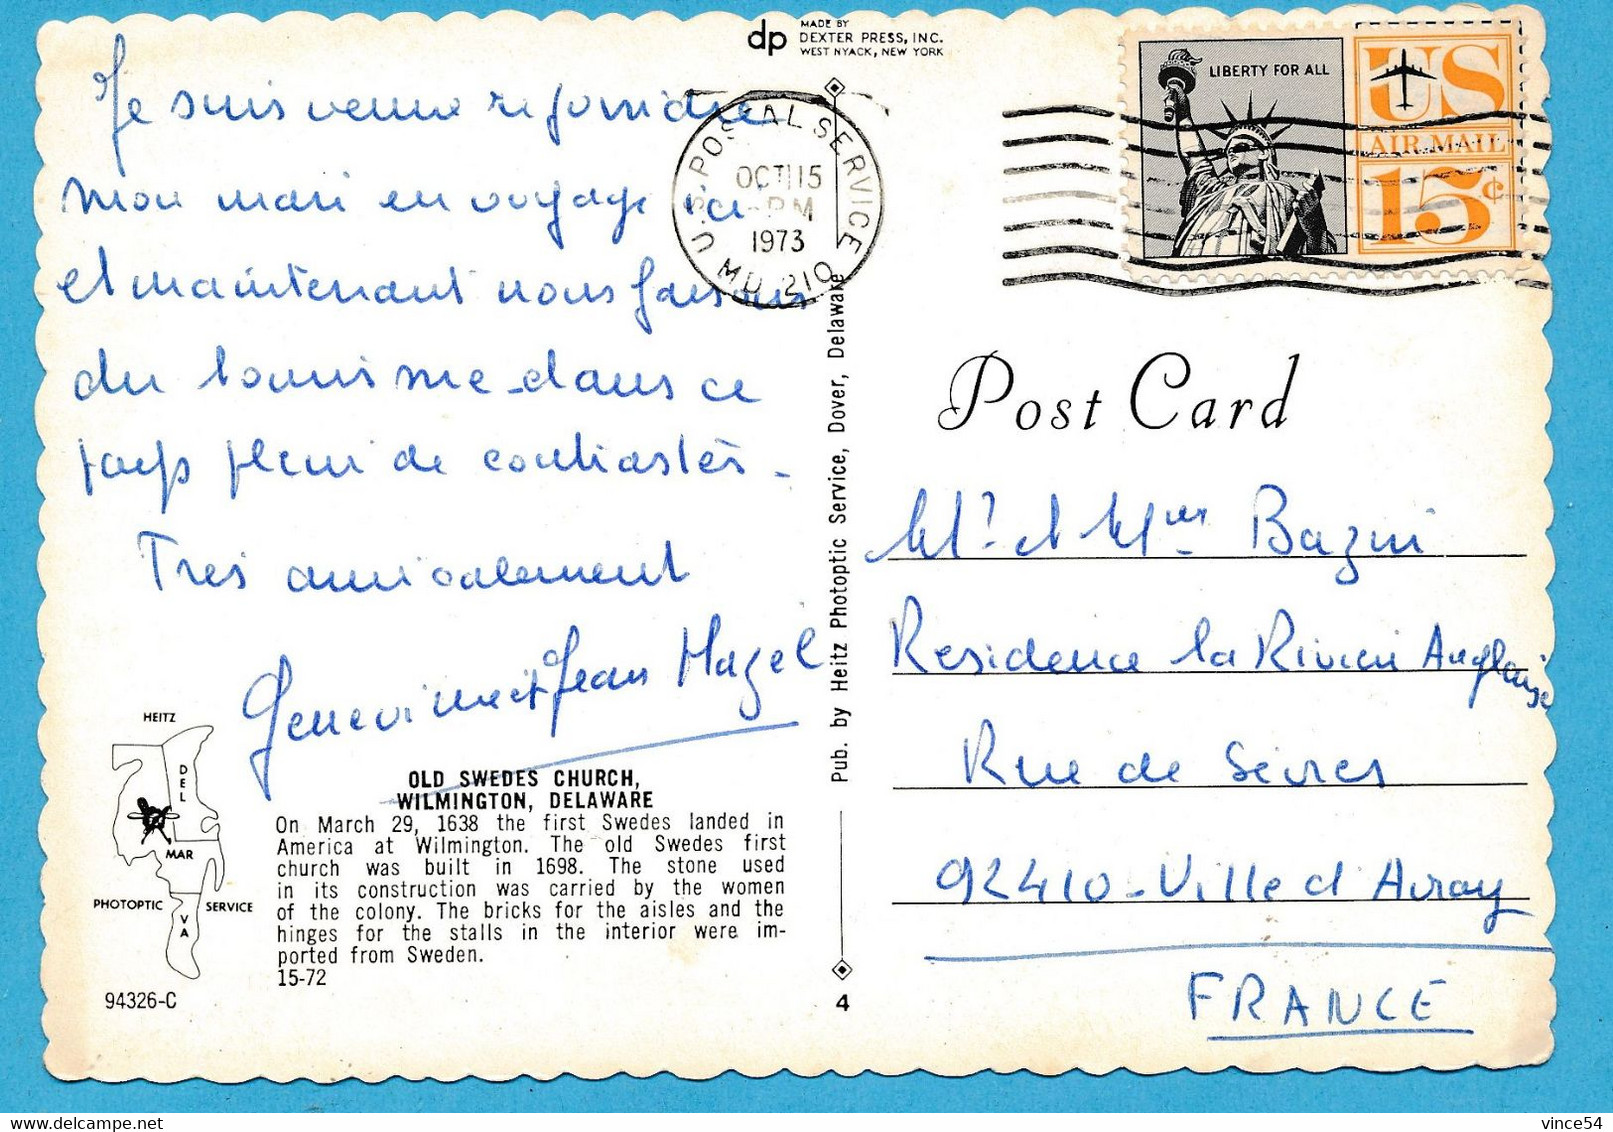 dp
MADE BY
DEXTER PRESS, INC.
WEST NYACK, NEW YORK
Je suis venue rejoindre
mon mari en voyage ici
et maintenant nous faisons
du tourisme dans ce
pays plein de contrastes.
Très amicalement
Geneviève et Jean Mazel
U.S. POSTAL SERVICE
OCT 15
PM
1973
MD 210
LIBERTY FOR ALL
US
AIR MAIL
15¢
Post Card
Mr et Mme Bazin
Residence la Rivière Anglaise
Rue de Sèvres
92410-Ville d'Avray
FRANCE
Pub. by Heitz Photoptic Service, Dover, Delaware
4
HEITZ
DEL
MAR
PHOTOPTIC
VA
SERVICE
94326-C
OLD SWEDES CHURCH,
WILMINGTON, DELAWARE
On March 29, 1638 the first Swedes landed in
America at Wilmington. The old Swedes first
church was built in 1698. The stone used
in its construction was carried by the women
of the colony. The bricks for the aisles and the
hinges for the stalls in the interior were im-
ported from Sweden.
15-72
vince54